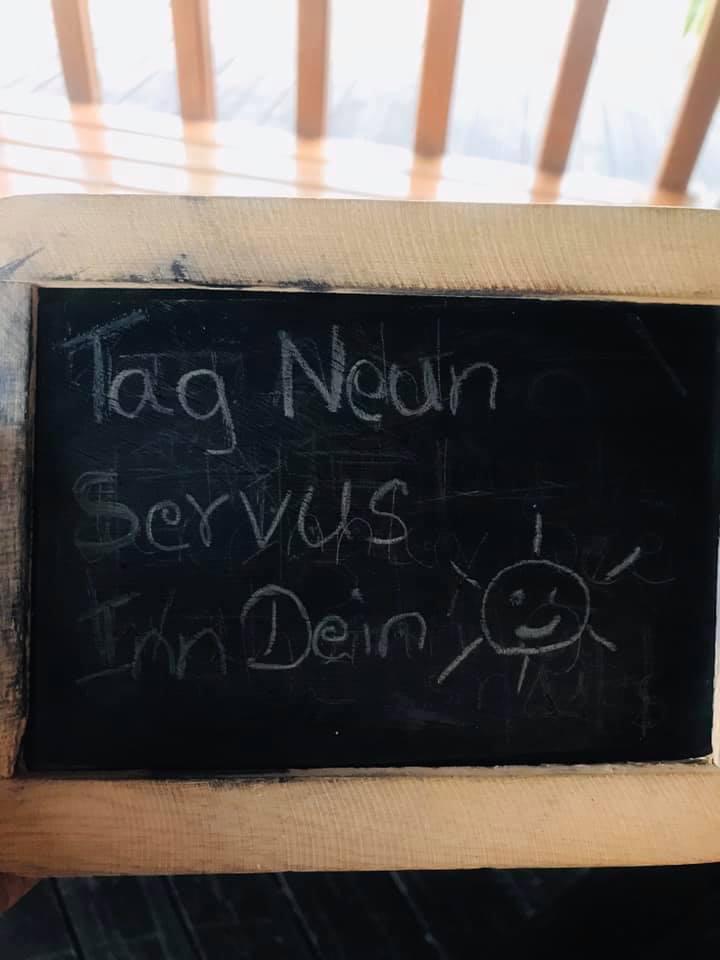 Tag Neun
Servus
Inn Dein